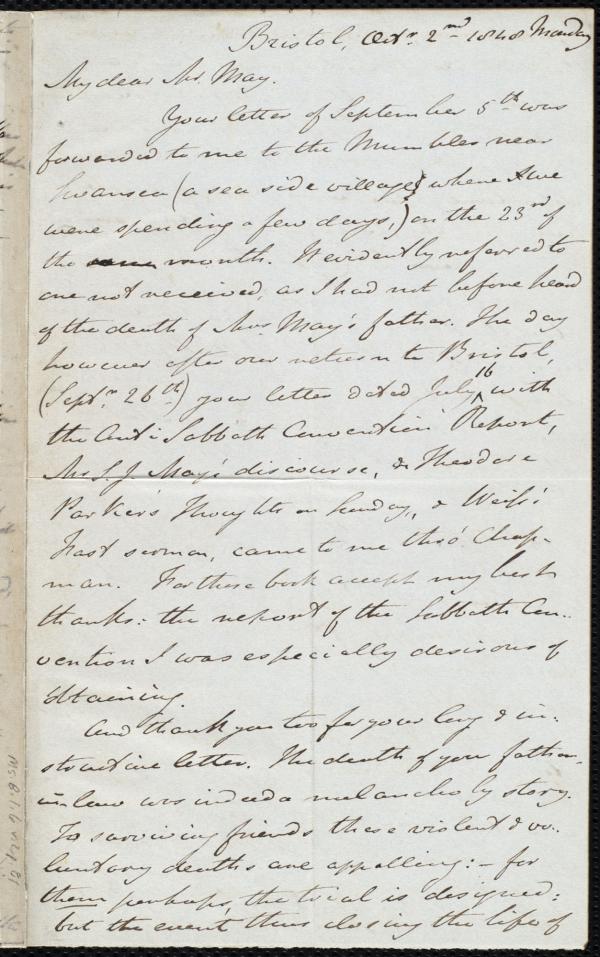 Bristol, Octr. 2nd 1848 Monday
My dear Mr. May.
Your letter of September 5th was
forwarded to me to the Mumbles near
Swansea (a sea side village) where we
were spending a few days,) on the 23rd of
the month. It evidently referred to
one not received, as I had not before heard
of the death of Mrs. May's father. The day
however after our return to Bristol,
(Septr. 26th) your letter dated July 16 with
the Anti Sabbath Convention Report,
Mr S. J. May's discourse, & Theodore
Parker's Thoughts on Sunday, & Weiss'
Fast sermon, came to me thro' Chap-
man. For these book accept my best
thanks: the report of the Sabbath Con-
vention I was especially desirous of
obtaining.
And thank you too for your long & in-
structive letter. The death of your father-
in law was indeed a melancholy story.
To surviving friends these violent & vo-
luntary deaths are appalling:- for
them perhaps, the trial is designed:
but the event thus closing the life of
Ms. B.1.6 v.2, p.81